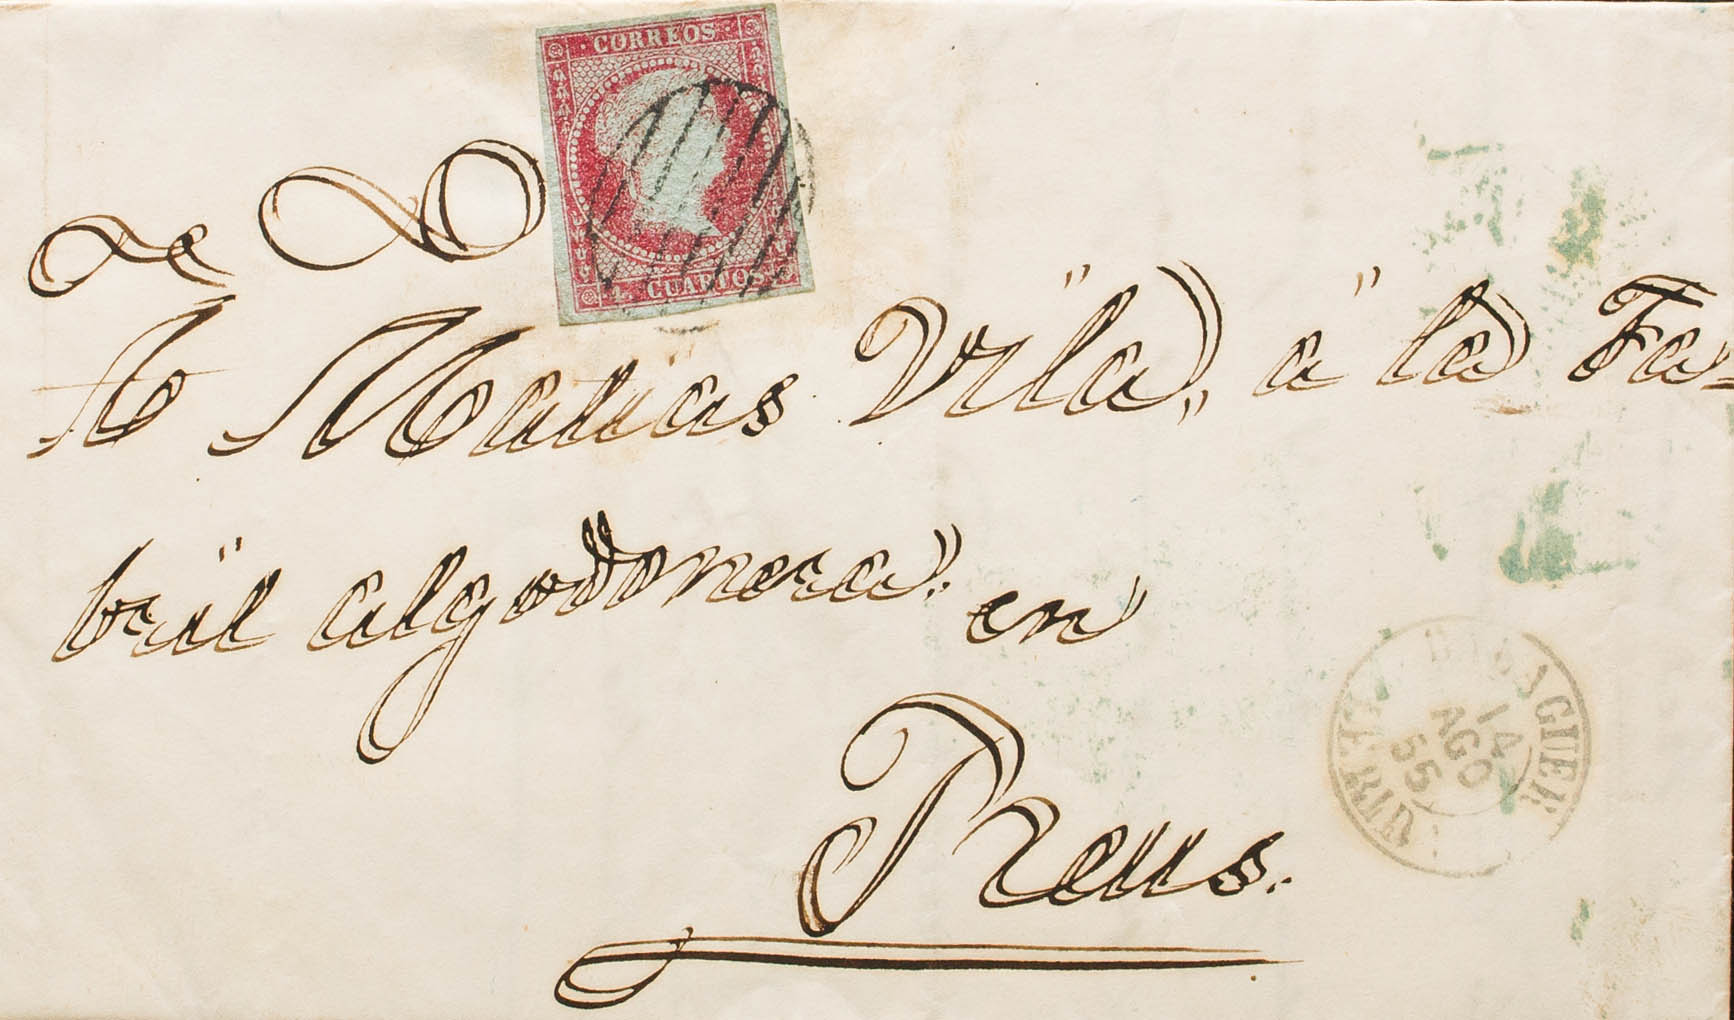 CORREOS
4 CUARTOS
Matias Vila, á la Fa-
bril algodonera. en
Reus.
BALAGUER
14
AGO
55
LERIDA